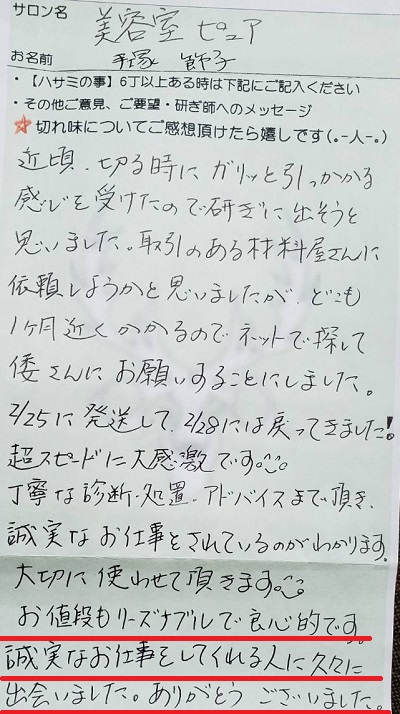 サロン名 美容室 ピュア
お名前 手塚 節子
・【ハサミの事】6丁以上ある時は下記にご記入ください
・その他ご意見、ご要望・研ぎ師へのメッセージ
☆切れ味についてご感想頂けたら嬉しです(｡-人-｡)
近頃、切る時に ガリッと引っかかる
感じを受けたので研ぎに出そうと
思いました。取引のある材料屋さんに
依頼しようかと思いましたが、どこも
1ヶ月近くかかるので ネットで探して
倭さんに お願いすることにしました。
2/25に発送して、2/28には戻ってきました!
超スピードに大感激です。
丁寧な診断・処置・アドバイスまで頂き、
誠実なお仕事をされているのがわかります。
大切に使わせて頂きます。
お値段もリーズナブルで良心的です。
誠実なお仕事をしてくれる人に久々に
出会いました。ありがとう ございました。